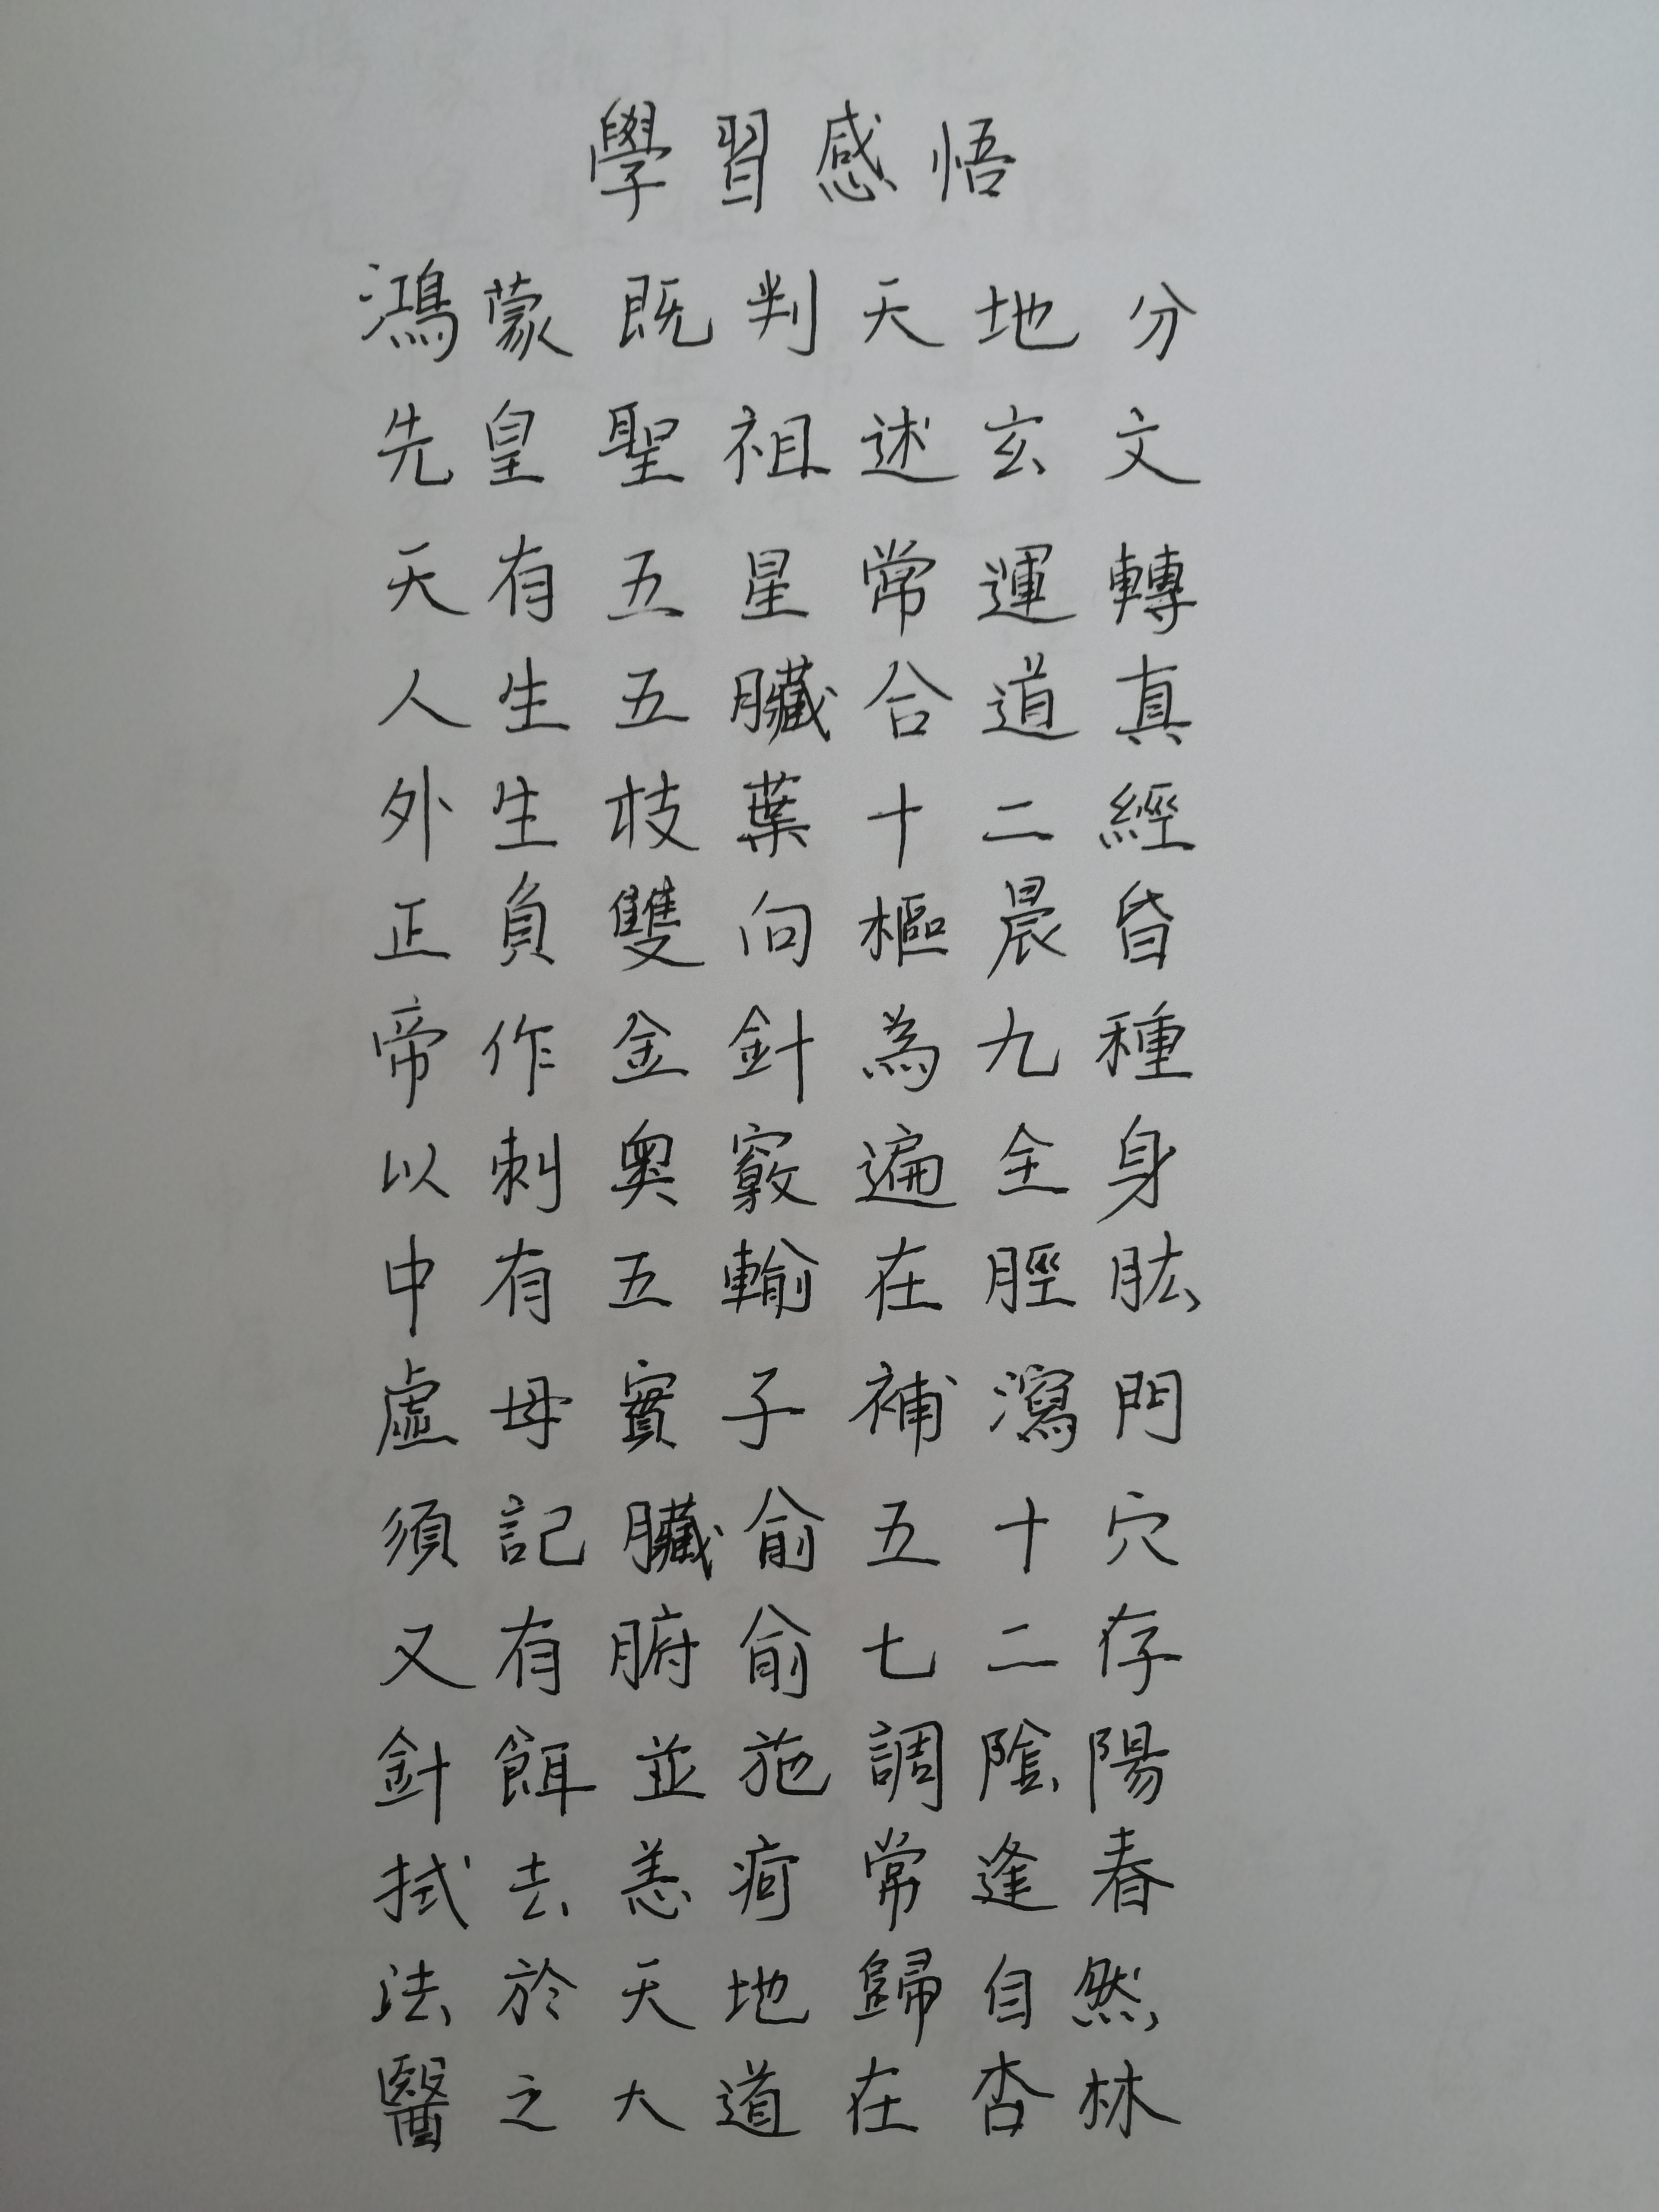 學習感悟
鴻蒙既判天地分
先皇聖祖述玄文
天有五星常運轉
人生五臟合道真
外生枝葉十二經
正負雙向樞晨昏
帝作金針為九種
以刺奧竅遍全身
中有五輸在脛肱
虛母實子補瀉門
須記臟俞五十穴
又有腑俞七二存
針餌並施調陰陽
拭去恙疴常逢春
法於天地歸自然
醫之大道在杏林